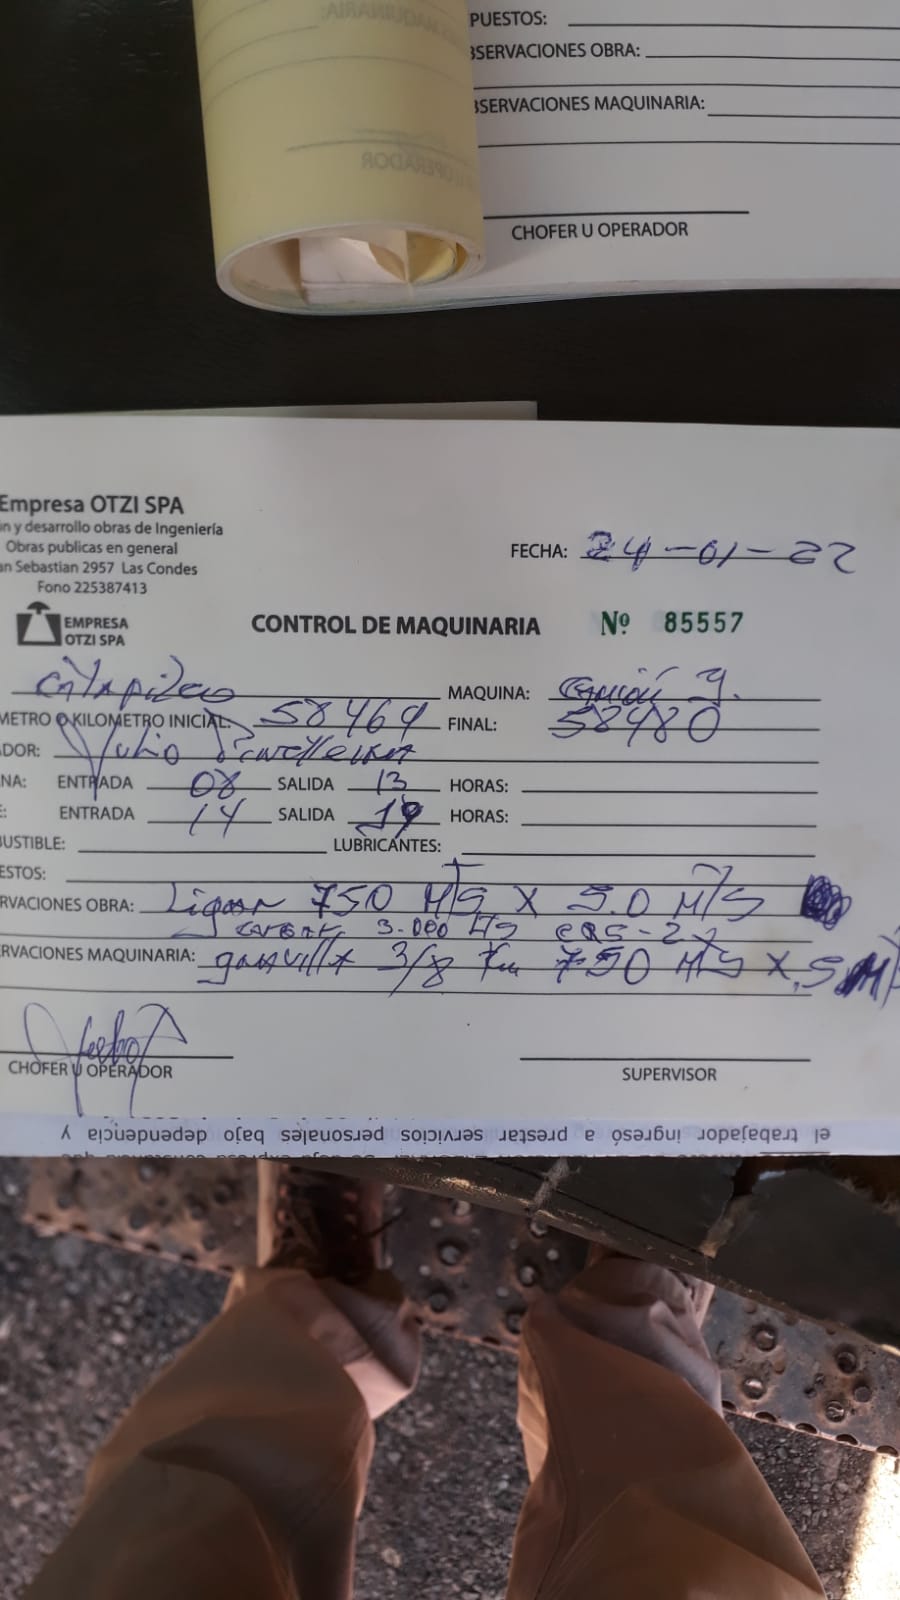 PUESTOS:
BSERVACIONES OBRA:
BSERVACIONES MAQUINARIA:
MAQUINARIA:
U OPERADOR
CHOFER U OPERADOR
Empresa OTZI SPA
ón y desarrollo obras de Ingeniería
Obras publicas en general
an Sebastian 2957 Las Condes
Fono 225387413
FECHA: 24-01-22
EMPRESA
OTZI SPA
CONTROL DE MAQUINARIA Nº 85557
MAQUINA:
METRO O KILOMETRO INICIAL: 58469 FINAL: 58480
ADOR: Julio
NA: ENTRADA 08 SALIDA 13 HORAS:
E: ENTRADA 14 SALIDA 19 HORAS:
BUSTIBLE: LUBRICANTES:
ESTOS:
RVACIONES OBRA: 750 MTS X 5.0 MTS
3.000 LTS CRS-2
ERVACIONES MAQUINARIA: gravilla 3/8 750 MTS X 5 M
CHOFER U OPERADOR SUPERVISOR
el trabajador ingresó a prestar servicios personales bajo dependencia y